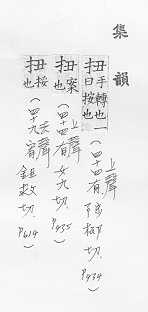 集韻
扭手轉也一曰按也(上聲四十四有 陟柳切 P434)
扭案也(上聲四十四有 女九切 P435)
扭按也(去聲四十九宥 鉏救切 P614)